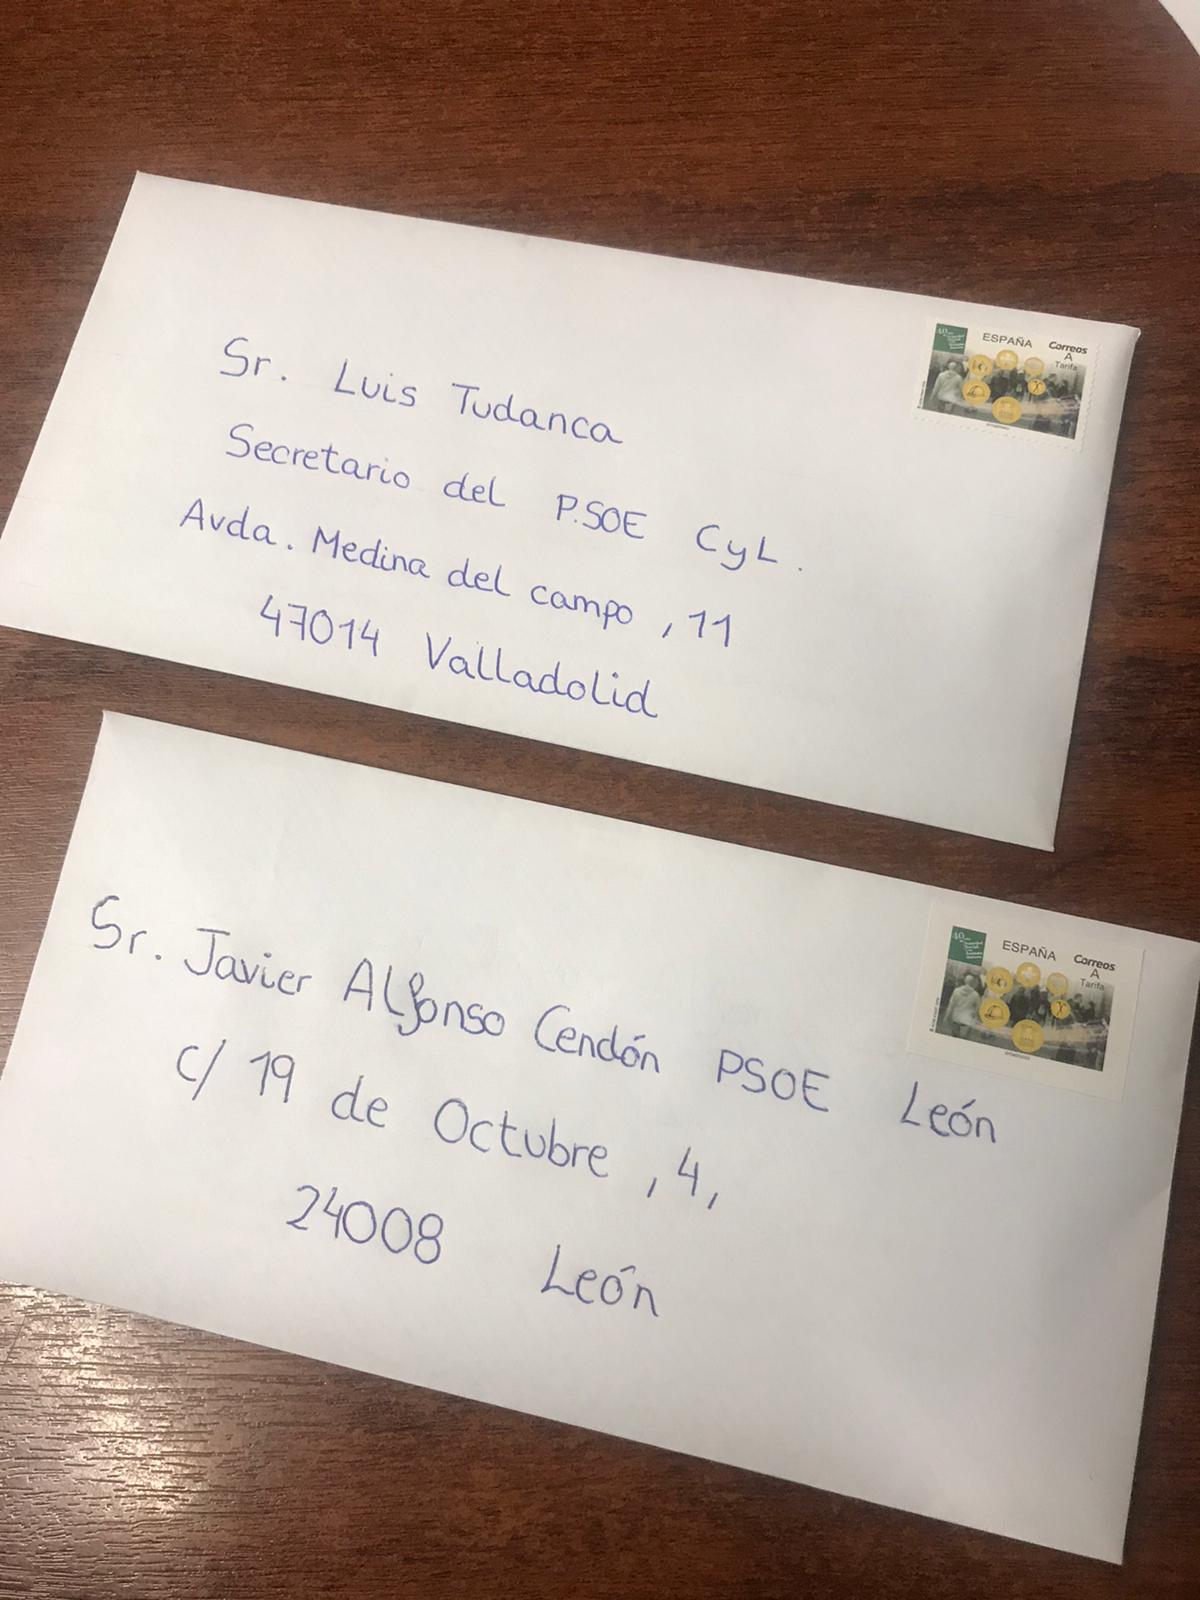 Sr. Luis Tudanca
Secretario del P.SOE CyL.
Avda. Medina del campo, 11
47014 Valladolid
ESPAÑA
Correos
A
Tarifa
Sr. Javier Alfonso Cendón PSOE León
C/ 19 de Octubre, 4,
24008 León
40
ESPAÑA
Correos
A
Tarifa